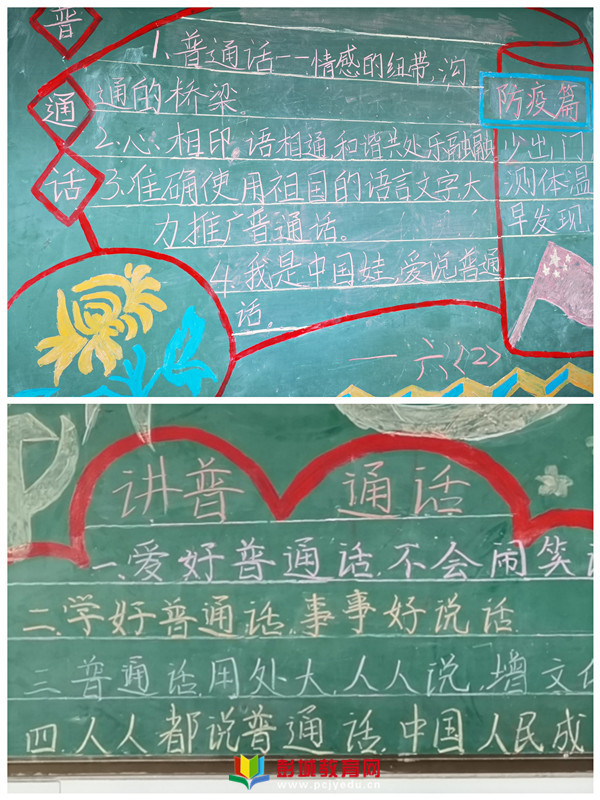 普
通
话
1、普通话——情感的纽带,沟
通的桥梁。
2.心相印,语相通,和谐共处乐融融
3.准确使用祖国的语言文字,大
力推广普通话。
4.我是中国娃,爱说普通
话。
——六(2)
防疫篇
少出门
测体温
早发现
讲普通话
一、爱好普通话,不会闹笑
二.学好普通话,事事好说话
三.普通话,用处大,人人说,增文
四.人人都说普通话,中国人民成
彭城教育网
www.pcjyedu.cn